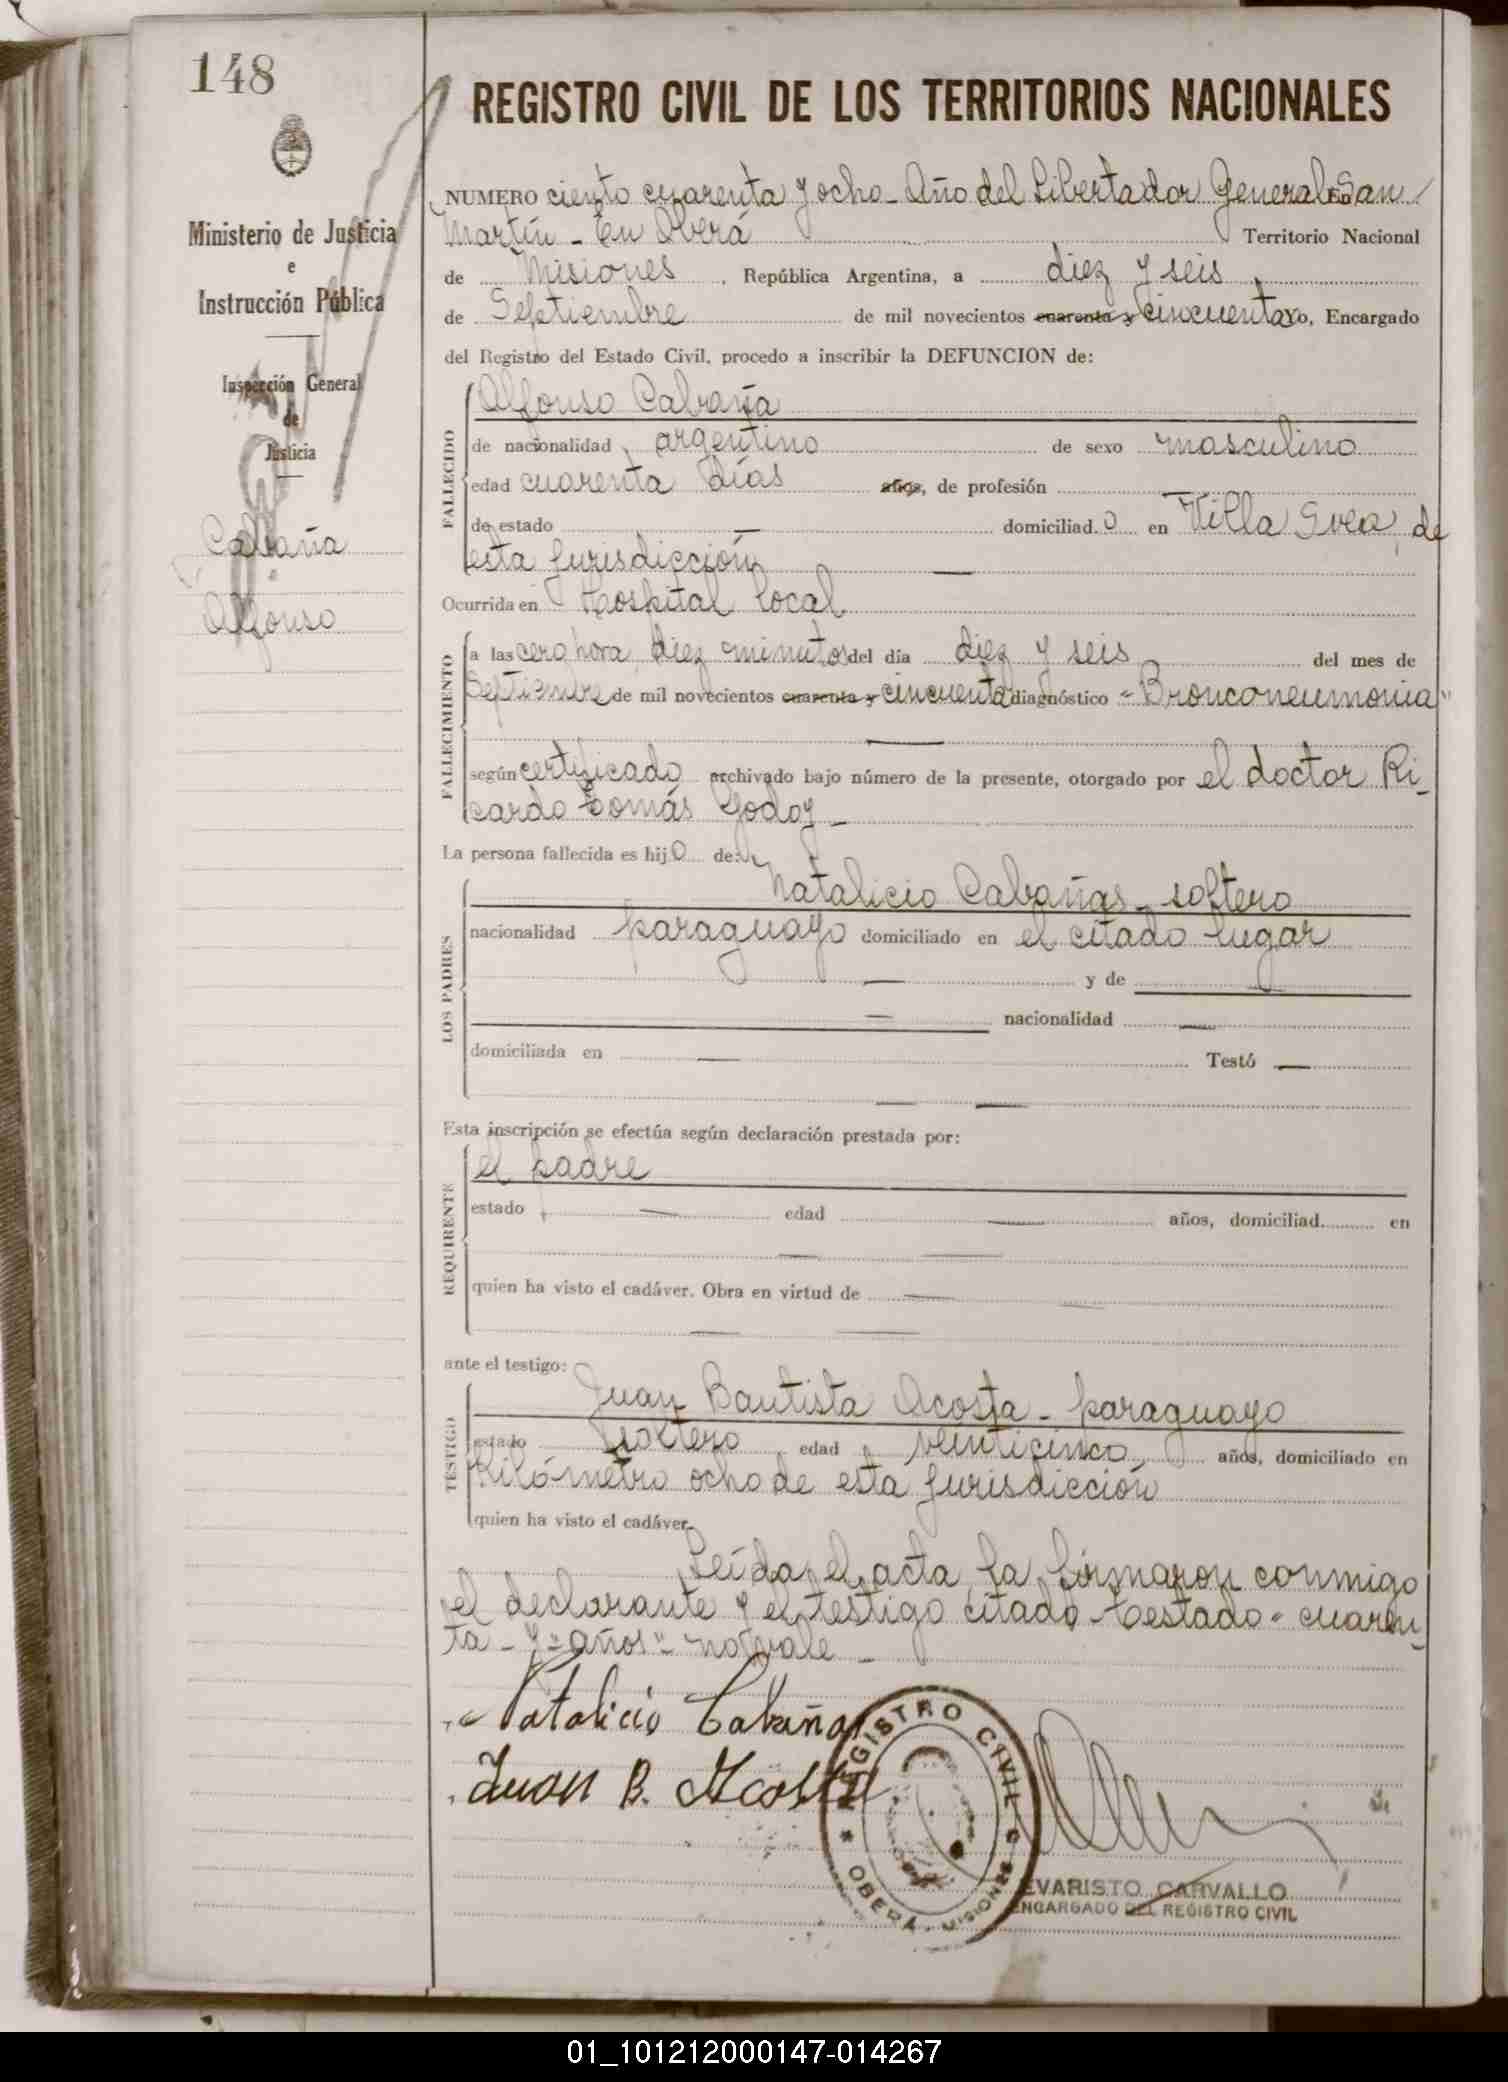 148
REGISTRO CIVIL DE LOS TERRITORIOS NACIONALES
Ministerio de Justicia
e
Instrucción Pública
Inspección General
de
Justicia
Cabaña
Alfonso
NUMERO ciento cuarenta y ocho - Año del Libertador General San
Martín - En Oberá Territorio Nacional
de Misiones, República Argentina, a diez y seis
de Septiembre de mil novecientos cuarenta y cincuenta Yo, Encargado
del Registro del Estado Civil, procedo a inscribir la DEFUNCION de:
FALLECIDO
Alfonso Cabaña
de nacionalidad argentino de sexo masculino
edad cuarenta días años, de profesión
de estado — domiciliad o en Villa Svea, de
esta jurisdicción —
Ocurrida en Hospital local
FALLECIMIENTO
a las cero hora diez minutos del día diez y seis del mes de
Septiembre de mil novecientos cuarenta y cincuenta diagnóstico "Bronconeumonia"
—
según certificado archivado bajo número de la presente, otorgado por el doctor Ri-
cardo Tomás Godoy -
La persona fallecida es hijo de:
LOS PADRES
Natalicio Cabañas - soltero
nacionalidad paraguayo domiciliado en el citado lugar
— y de —
— nacionalidad —
domiciliada en — Testó —
— —
Esta inscripción se efectúa según declaración prestada por:
REQUIRENTE
el padre
estado — edad — años, domiciliad en
— —
quien ha visto el cadáver. Obra en virtud de — —
— —
ante el testigo:
TESTIGO
Juan Bautista Acosta - paraguayo
estado soltero edad veinticinco años, domiciliado en
Kilómetro ocho de esta jurisdicción
quien ha visto el cadáver.
Leída el acta la firmaron conmigo
el declarante y el testigo citado - Testado - cuaren-
ta - y - años" - no vale -
Natalicio Cabañas
Juan B. Acosta
REGISTRO CIVIL
* OBERÁ - MISIONES *
EVARISTO CARVALLO
ENCARGADO DEL REGISTRO CIVIL
01_101212000147-014267